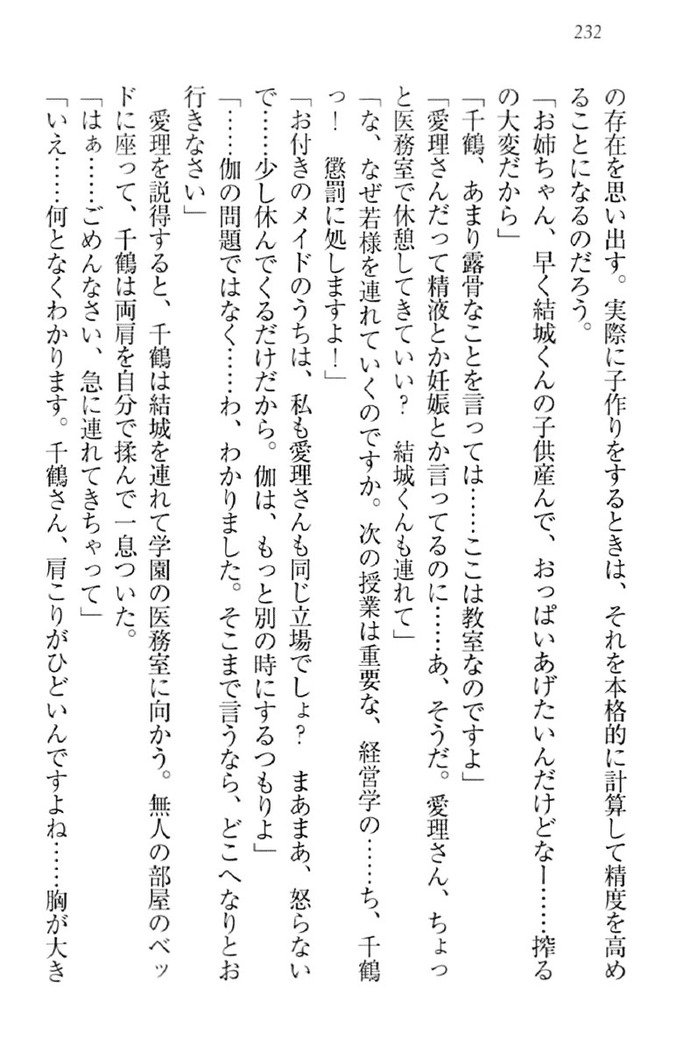 232
の存在を思い出す。実際に子作りをするときは、それを本格的に計算して精度を高め
ることになるのだろう。
「お姉ちゃん、早く結城くんの子供産んで、おっぱいあげたいんだけどなー……搾る
の大変だから」
「千鶴、あまり露骨なことを言っては……ここは教室なのですよ」
「愛理さんだって精液とか妊娠とか言ってるのに……あ、そうだ。愛理さん、ちょっ
と医務室で休憩してきていい？　結城くんも連れて」
「な、なぜ若様を連れていくのですか。次の授業は重要な、経営学の……ち、千鶴
っ！　懲罰に処しますよ！」
「お付きのメイドのうちは、私も愛理さんも同じ立場でしょ？　まあまあ、怒らない
で……少し休んでくるだけだから。伽は、もっと別の時にするつもりよ」
「……伽の問題ではなく……わ、わかりました。そこまで言うなら、どこへなりとお
行きなさい」
　愛理を説得すると、千鶴は結城を連れて学園の医務室に向かう。無人の部屋のベッ
ドに座って、千鶴は両肩を自分で揉んで一息ついた。
「はぁ……ごめんなさい、急に連れてきちゃって」
「いえ……何となくわかります。千鶴さん、肩こりがひどいんですよね……胸が大き